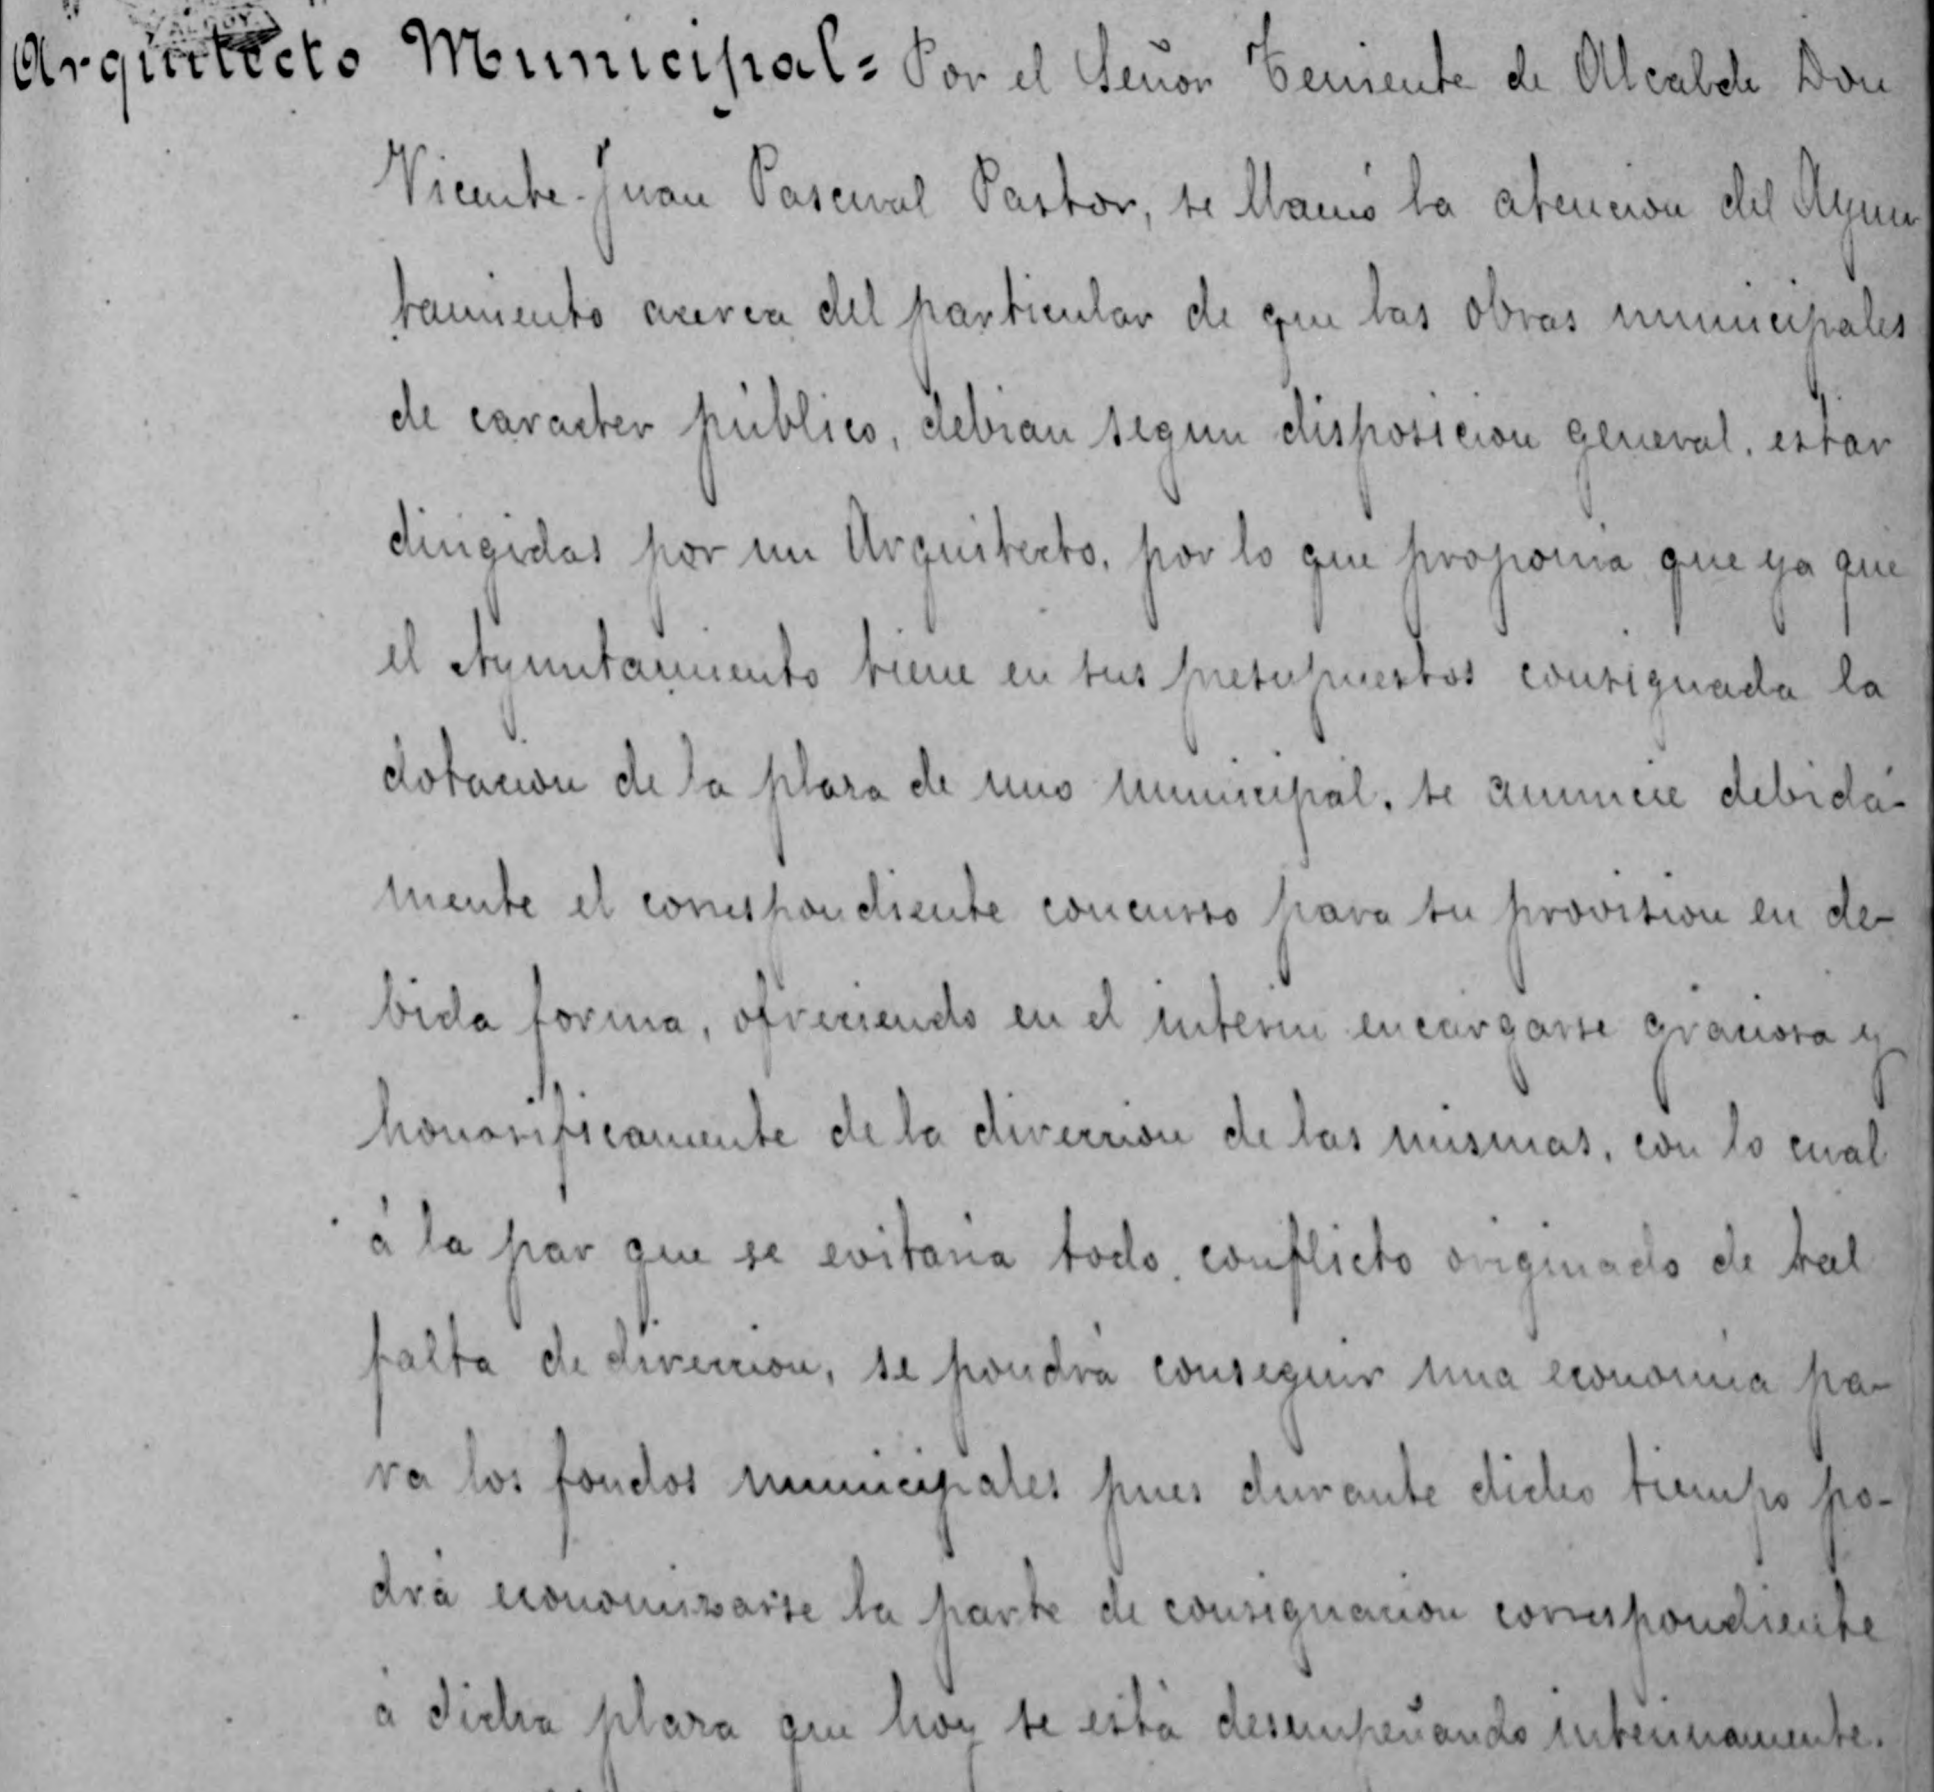 Arquitecto Municipal= Por el Señor Teniente de Alcalde Don
Vicente-Juan Pascual Pastor, se llamó la atencion del Ayun
tamiento acerca del particular de que las obras municipales
de caracter público, debian segun disposicion general, estar
dirigidas por un Arquitecto, por lo que proponia que ya que
el Ayuntamiento tiene en sus presupuestos consignada la
dotacion de la plaza de uno municipal, se anuncie debida-
mente el correspondiente concurso para su provision en de-
bida forma, ofreciendo en el interin encargarse graciosa y
honorificamente de la direccion de las mismas, con lo cual
á la par que se evitaria todo conflicto originado de tal
falta de direccion, se pondrá conseguir una economia pa-
ra los fondos municipales pues durante dicho tiempo po-
drá economizarse la parte de consignacion correspondiente
á dicha plaza que hoy se está desempeñando interinamente.